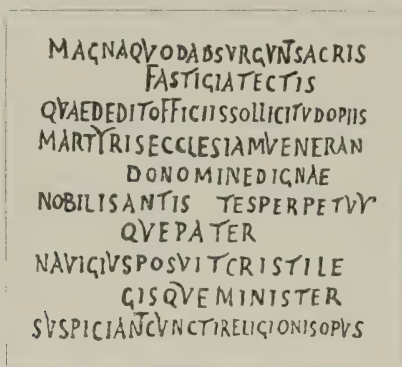 MAGNAQVODADSVRGVNTSACRIS
FASTIGIATECTIS
QVAEDEDITOFFICIISSOLLICITVDOPIIS
MARTYRISECCLESIAMVENERAN
DONOMINEDIGNAE
NOBILISANTIS TESPERPETVV
QVEPATER
NAVIGIVSPOSVITCRISTILE
GISQVEMINISTER
SVSPICIANTCVNCTIRELIGIONISOPVS